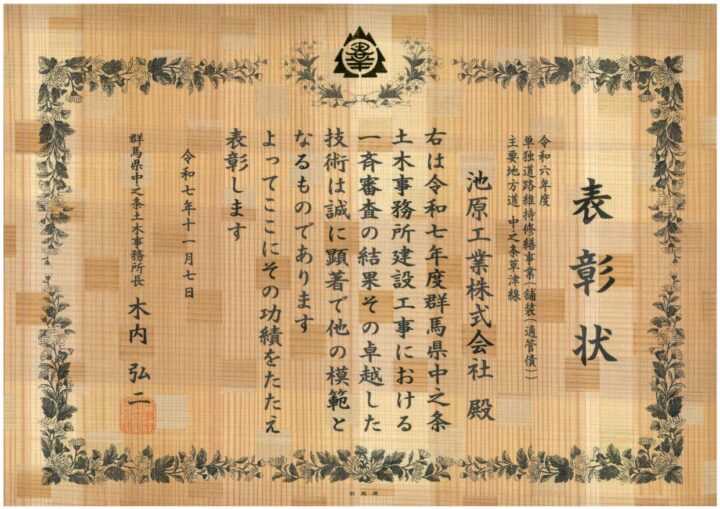 表彰状
令和六年度
単独道路維持修繕事業(舗装(適管債))
主要地方道 中之条草津線
池原工業株式会社 殿
右は令和七年度群馬県中之条
土木事務所建設工事における
一斉審査の結果その卓越した
技術は誠に顕著で他の模範と
なるものであります
よってここにその功績をたたえ
表彰します
令和七年十一月七日
群馬県中之条土木事務所長 木内 弘二